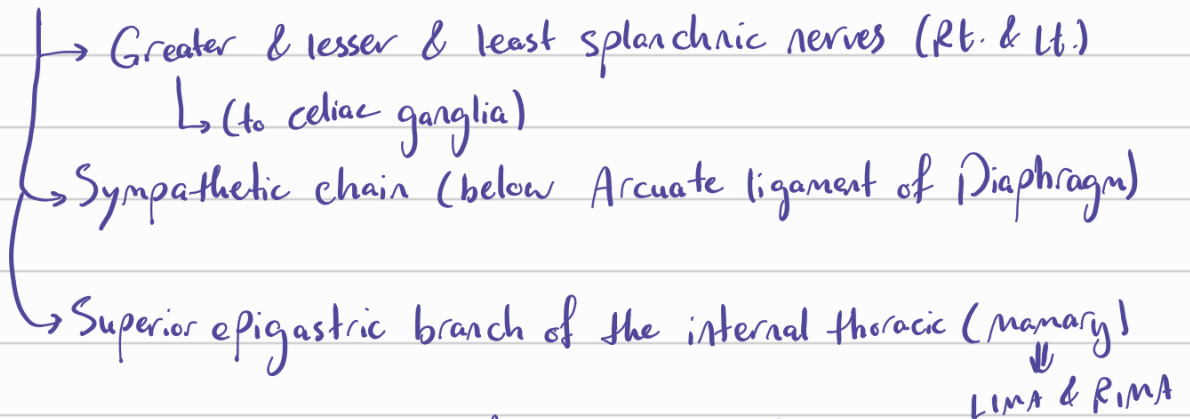 → Greater & lesser & least splanchnic nerves (Rt. & Lt.)
↳ (to celiac ganglia)
→ Sympathetic chain (below Arcuate ligament of Diaphragm)
→ Superior epigastric branch of the internal thoracic (mamary)
⇓
LIMA & RIMA